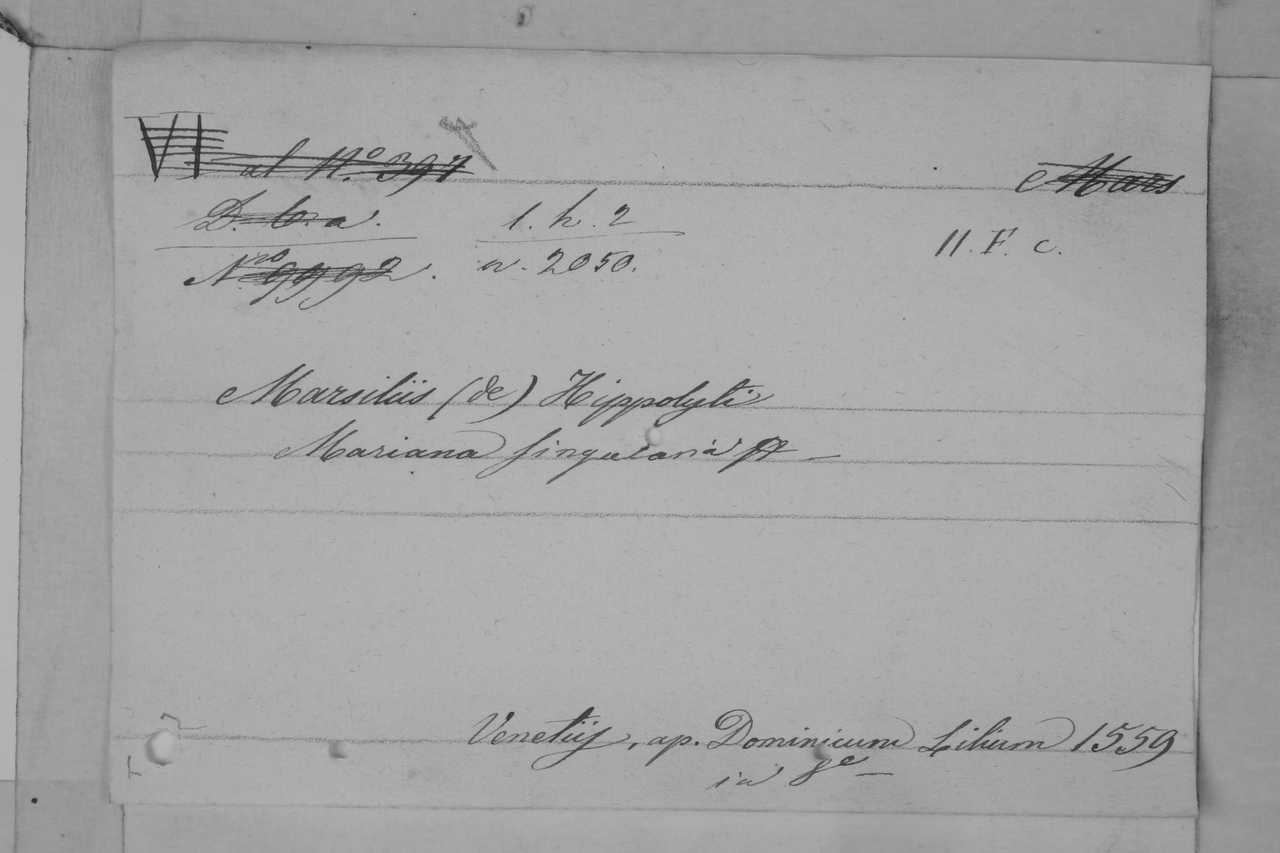 VI al N.º 397
Mars
D. b. a. 1. h. 2
II. F. c.
N.ro 9992. n. 2050.
Marsiliis (de) Hippolyti
Mariana singularia
Venetiis, ap. Dominicum Lilium 1559
in 8º